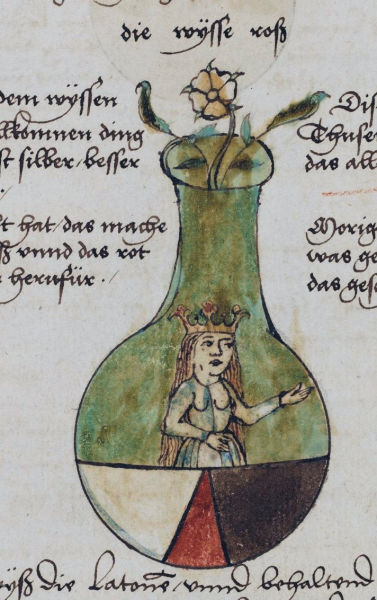 die wÿsse roß
dem wÿssen
lkomnen ding
st silber, besser
t hat, das mache
ß vnnd das rot
herufür.
Dis
Thusen
das all
Morig
was ge
das gesch
ÿß die Latonē, vnnd behaltend